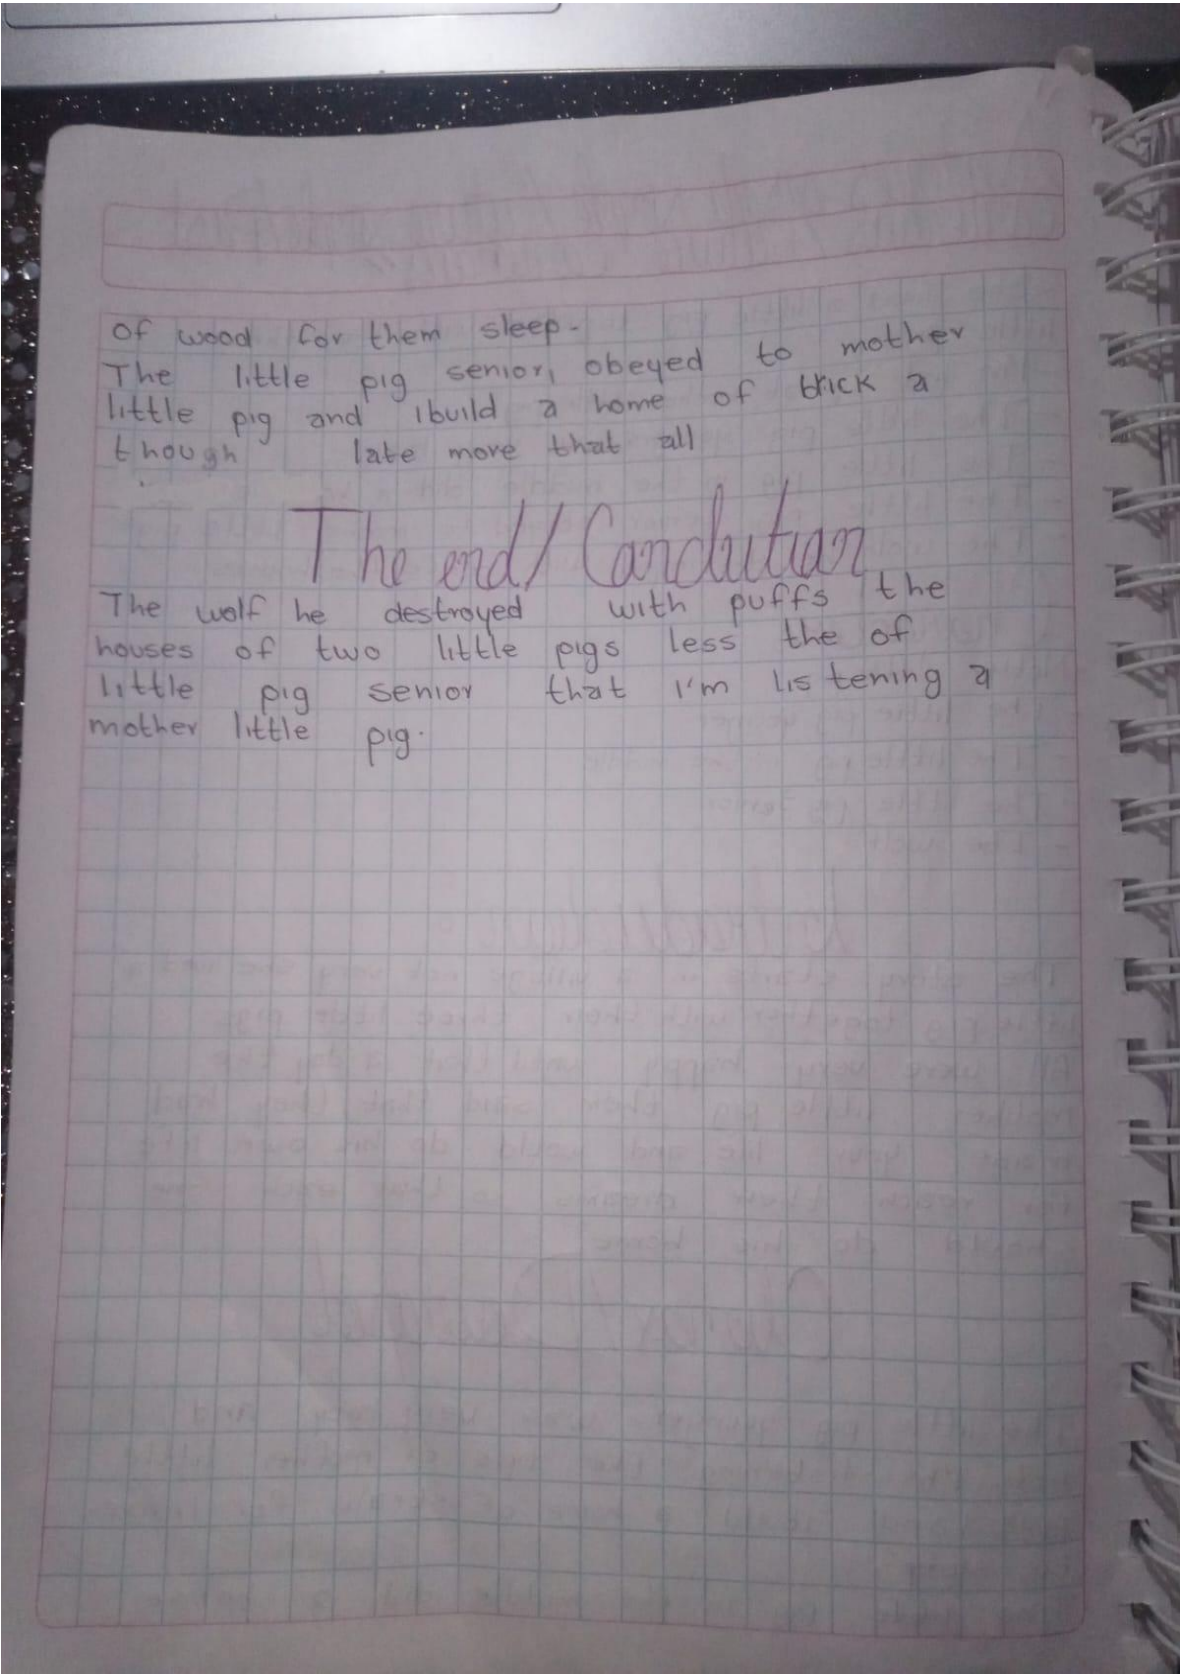 of wood for them sleep-
The little pig senior, obeyed to mother
little pig and ibuild a home of brick a
though late more that all
The end/Conclution
The wolf he destroyed with puffs the
houses of two little pigs less the of
little pig senior that i'm listening a
mother little pig.